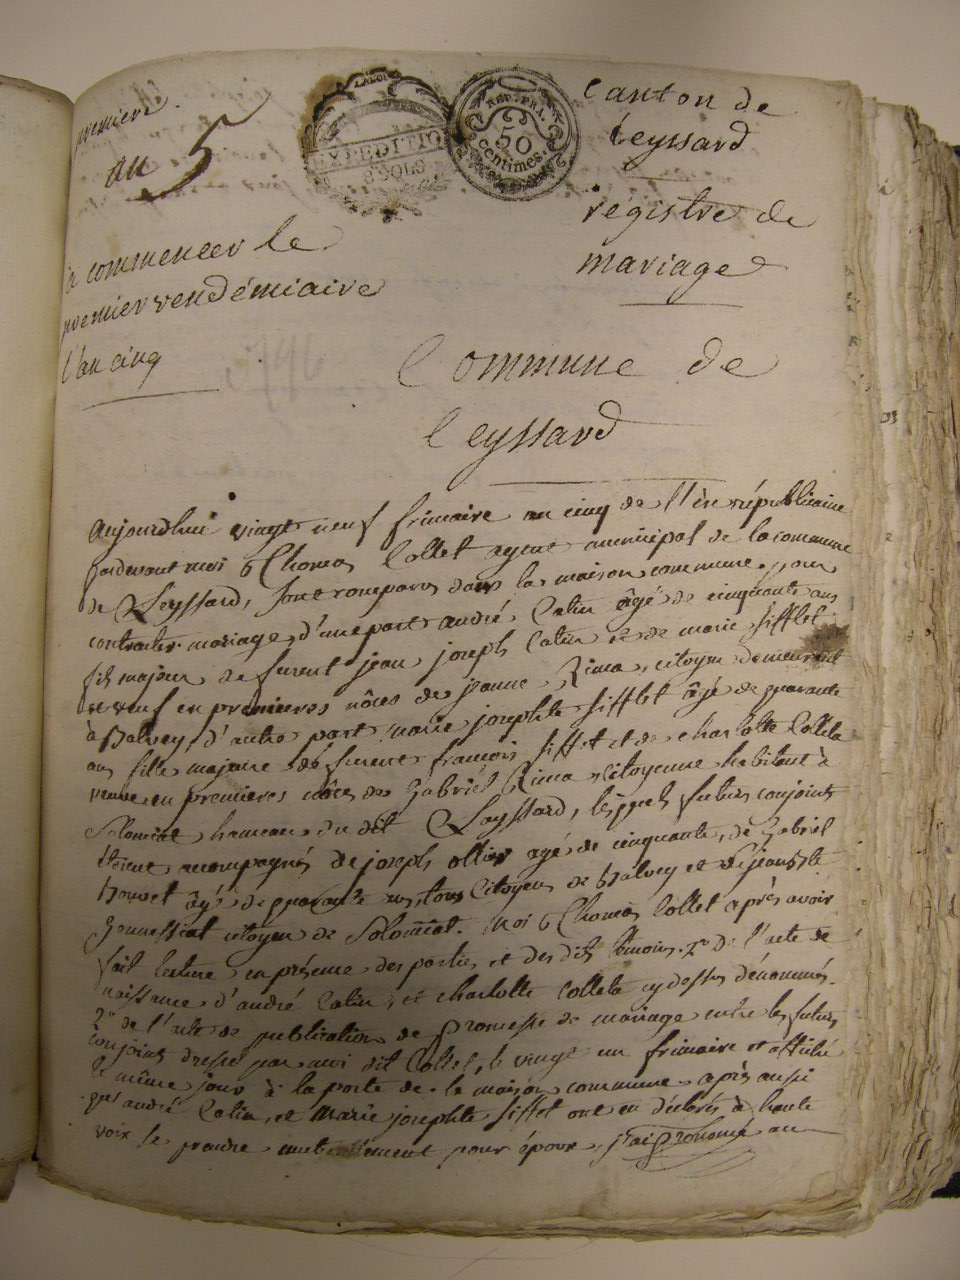 première
an 5
à commencer le
premier vendémiaire
l'an cinq
L'AIN
EXPEDITIO
8 SOLS
REP. FRA.
50
centimes.
Canton de
Leyssard
régistre de
mariage
Commune de
Leyssard
Aujourdhui vingt neuf frimaire an cinq de l'ère républicaine
pardevant moi Thomas Collet agent municipal de la commune
de Leyssard, sont comparus dans la maison commune pour
contracter mariage, d'une part andré Catin âgé de cinquante ans
fils majeur de furent jean joseph Catin et de marie sifflet
veuf en premieres nôces de jeanne Rima, citoyen demeurant
à Balvey, d'autre part marie josephte sifflet âgé de quarante
ans fille majeure de furent françois siffet et de charlotte Colleta
veuve en premieres nôces de Gabriel Rima citoyenne habitant à
Solomiat hameau du dit Leyssard, lesquels futurs conjoints
étoient accompagnés de joseph ollier agé de cinquante, de Gabriel
âgé de quarante ans, tous Citoyens de Balvey et de
citoyen de Solomiat. Moi Thomas Collet après avoir
fait lecture en présence des parties et des dits témoins. 1° De l'acte de
naissance d'andré Catin, et charlotte Colleta cy dessus dénommés.
2° de l'acte de publication de Promesse de mariage entre les futurs
conjoints dressé par moi dit Collet, le vingt un frimaire et affiché
le même jour à la porte de la maison commune après aussi
que andré Catin, et Marie josephte siffet ont eu déclarés à haute
voix se prendre mutuellement pour époux, j'ai Prononcé au